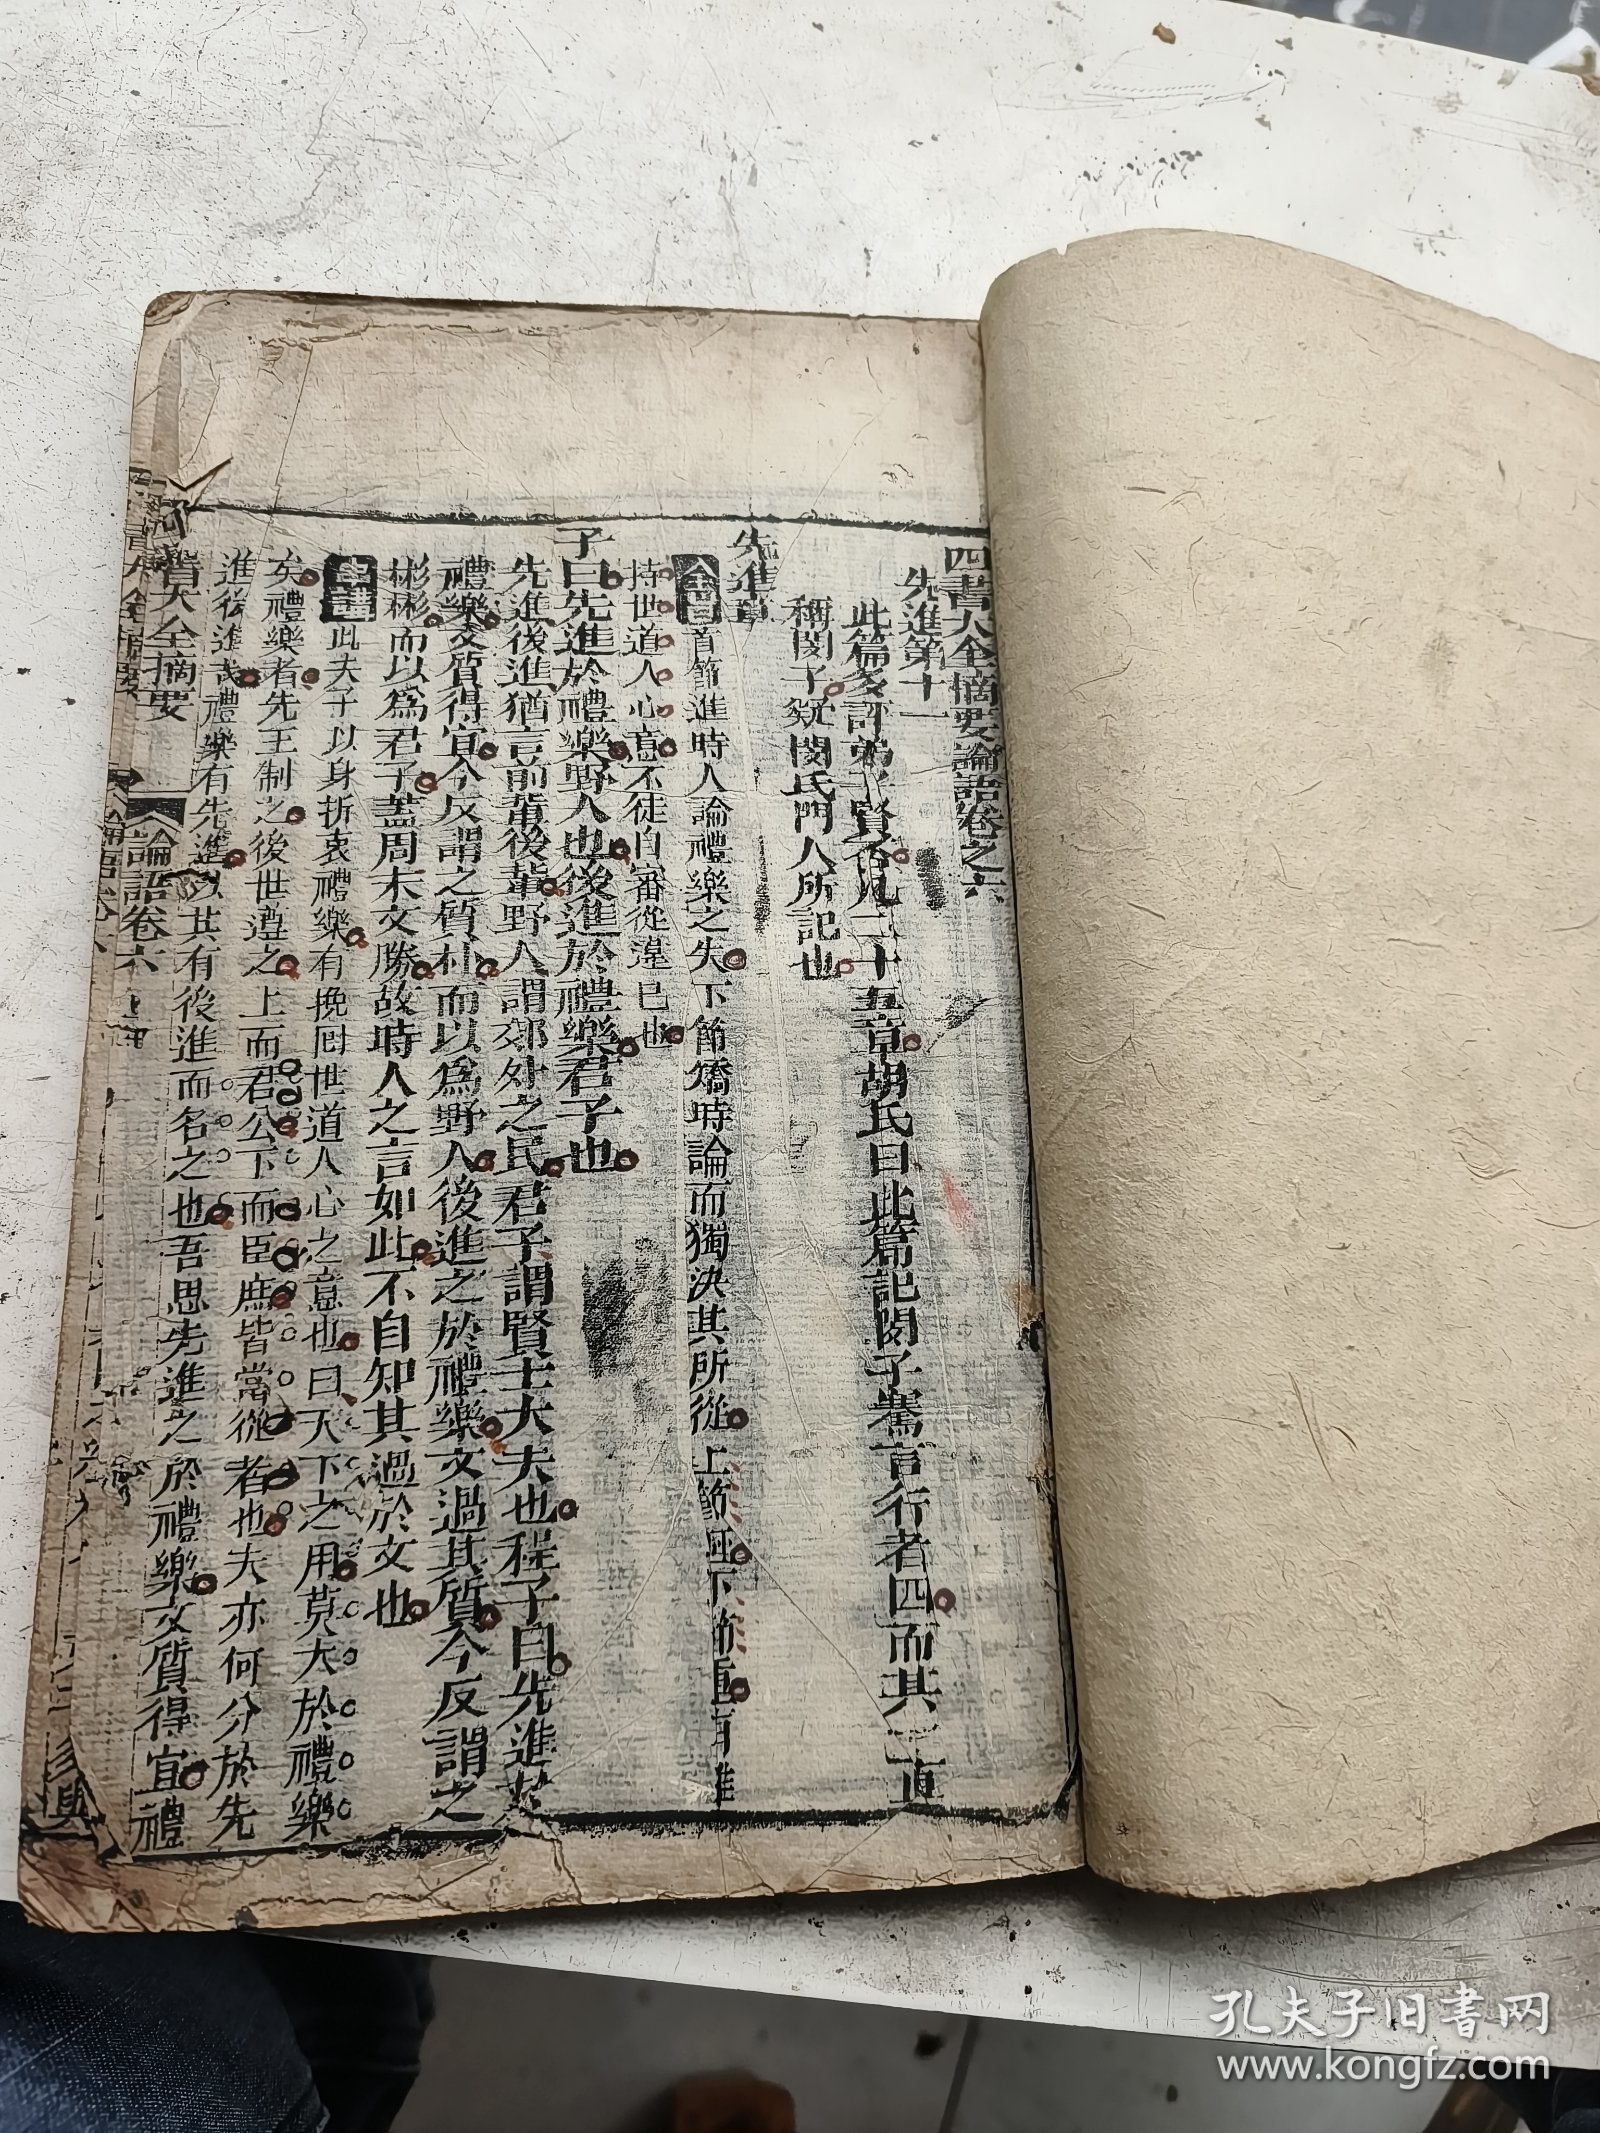 四書大全摘要論語卷之六
先進第十一
此篇多評弟子賢否凡二十五章胡氏曰此篇記閔子騫言行者四而其一直
稱閔子疑閔氏門人所記也
先進章
全旨首節進時人論禮樂之失下節矯時論而獨決其所從上節輕下節重
持世道人心意不徒自審從違已也
子曰先進於禮樂野人也後進於禮樂君子也
先進後進猶言前輩後輩野人謂郊外之民君子謂賢士大夫也程子曰先進於
禮樂文質得宜今反謂之質朴而以為野人後進之於禮樂文過其質今反謂之
彬彬而以為君子蓋周末文勝故時人之言如此不自知其過於文也
串講此夫子以身折衷禮樂有挽回世道人心之意也曰天下之用莫大於禮樂
矣禮樂者先王制之後世遵之上而君公下而臣庶皆當從者也夫亦何分於先
進後進哉禮樂有先進以其有後進而名之也吾思先進之於禮樂文質得宜禮
書大全摘要
論語卷六
孔夫子旧书网
www.kongfz.com